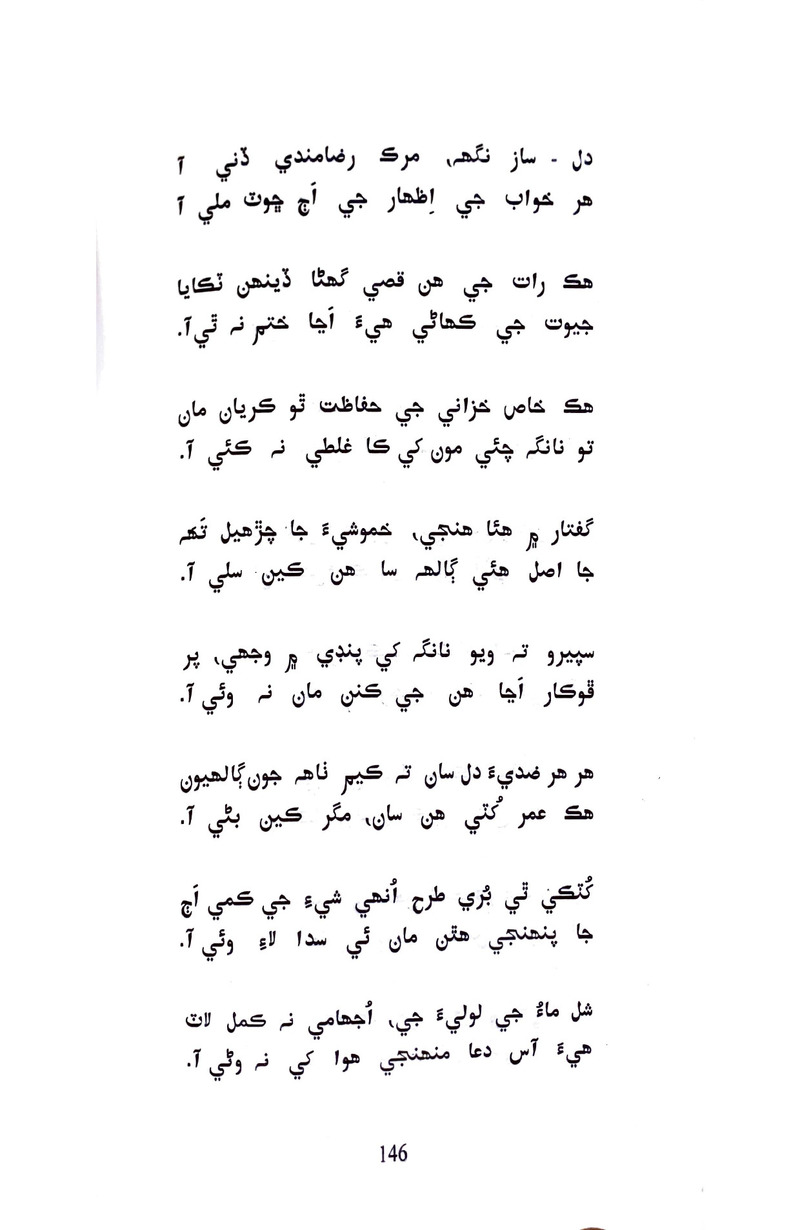 دل - ساز نگهہ، مرڪ رضامندي ڏني آ
هر خواب جي اِظهار جي اَڄ ڇوٽ ملي آ
هڪ رات جي هن قصي گهڻا ڏينهن ٽڪايا
جيوت جي ڪهاڻي هيءَ اَڃا ختم نہ ٿي آ.
هڪ خاص خزاني جي حفاظت ٿو ڪريان مان
تو نانگہ چئي مون کي ڪا غلطي نہ ڪئي آ.
گفتار ۾ هئا هنجي، خموشيءَ جا چڙهيل تَهہ
جا اصل هئي ڳالهہ سا هن ڪين سلي آ.
سپيرو تہ ويو نانگہ کي پنڊي ۾ وجهي، پر
ڦوڪار اَڃا هن جي ڪنن مان نہ وئي آ.
هر هر ضديءَ دل سان تہ ڪيم ٺاهہ جون ڳالهيون
هڪ عمر کُٽي هن سان، مگر ڪين بڻي آ.
کُٽڪي ٿي بُري طرح اُنهي شيءِ جي ڪمي اَڄ
جا پنهنجي هٿن مان ئي سدا لاءِ وئي آ.
شل ماءُ جي لوليءَ جي، اُجهامي نہ ڪمل لاٽ
هيءَ آس دعا منهنجي هوا کي نہ وڻي آ.
146